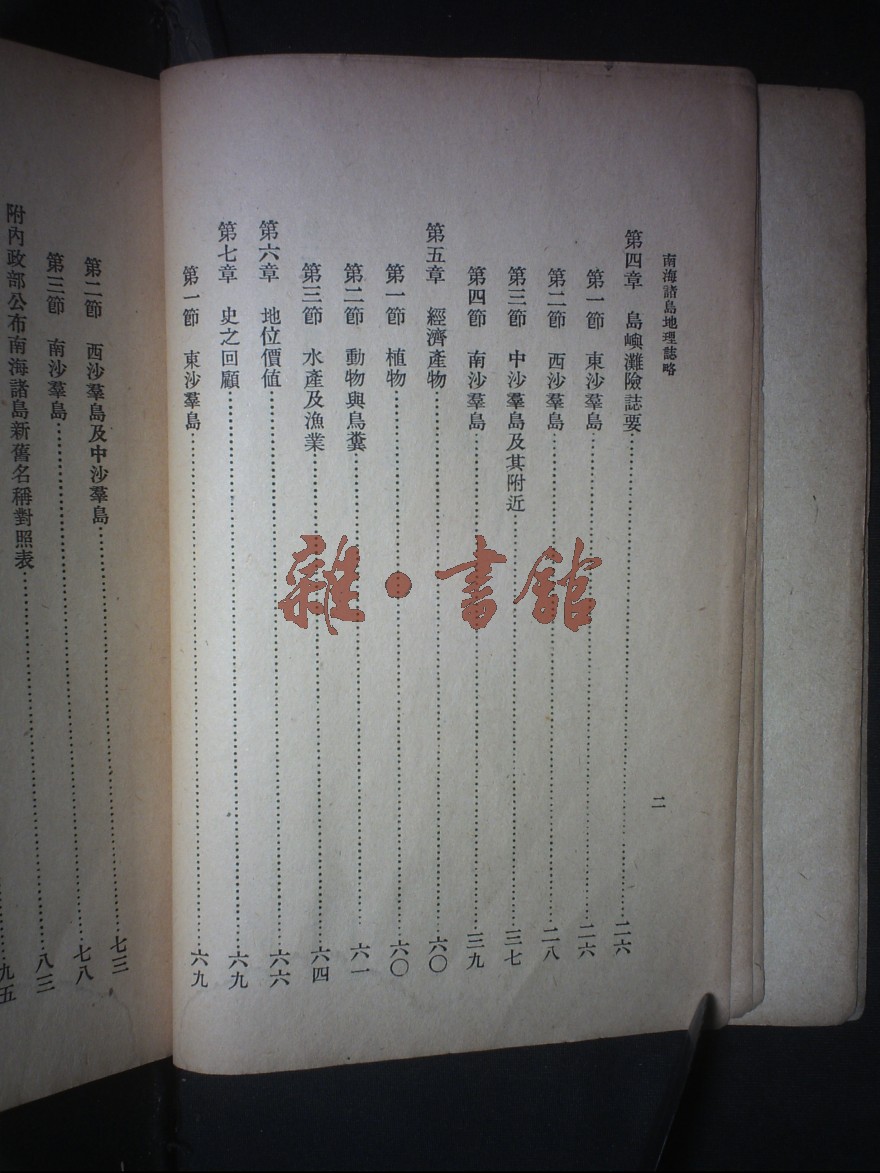 南海諸島地理誌略
二
第四章 島嶼灘險誌要……二六
第一節 東沙羣島……二六
第二節 西沙羣島……二八
第三節 中沙羣島及其附近……三七
第四節 南沙羣島……三九
第五章 經濟產物……六〇
第一節 植物……六〇
第二節 動物與鳥糞……六一
第三節 水產及漁業……六四
第六章 地位價值……六六
第七章 史之回顧……六九
第一節 東沙羣島……六九
第二節 西沙羣島及中沙羣島……七三
第三節 南沙羣島……七八
附內政部公布南海諸島新舊名稱對照表……八三
……九五
雜·書館